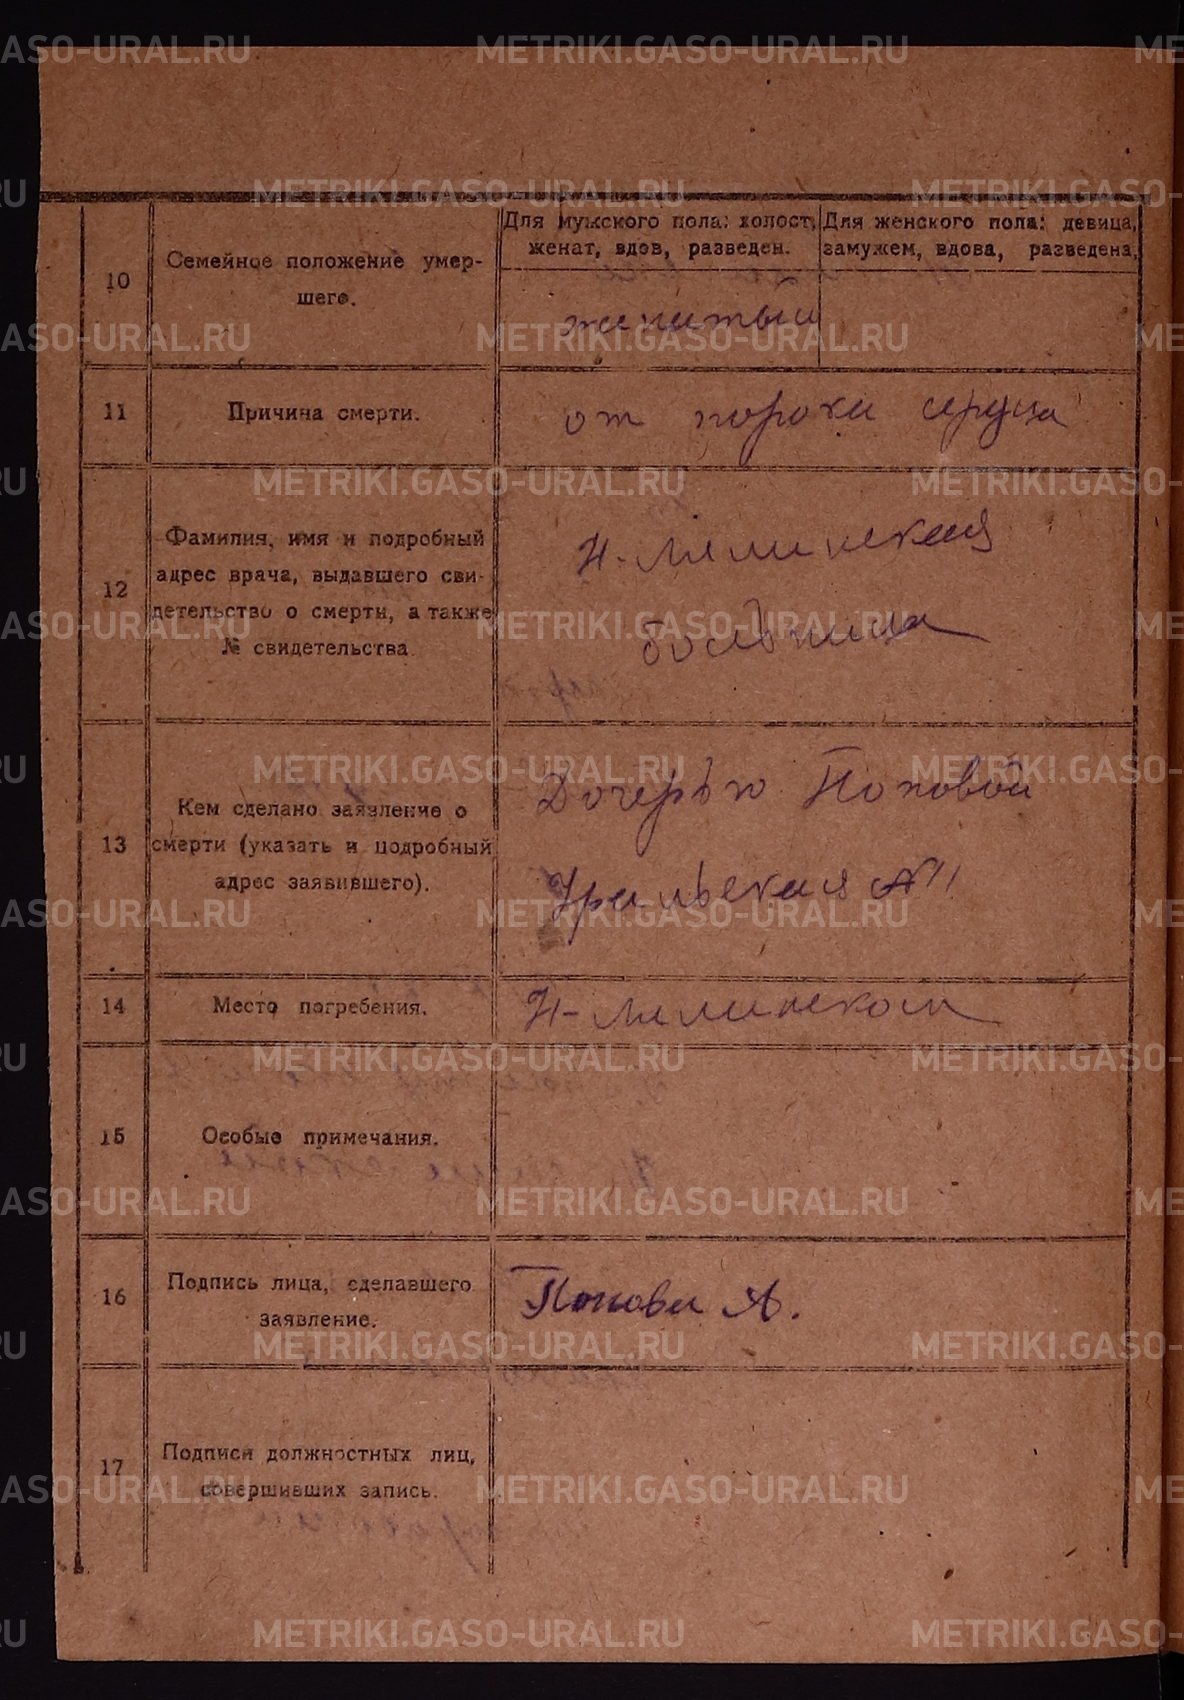 10
Семейное положение умер-
шего.
Для мужского пола: холост,
женат, вдов, разведен.
Для женского пола: девица,
замужем, вдова, разведена,
женитый
11
Причина смерти.
от порока сердца
12
Фамилия, имя и подробный
адрес врача, выдавшего сви-
детельство о смерти, а также
№ свидетельства
Н-Лялинская
больница
13
Кем сделано заявление о
смерти (указать и подробный
адрес заявившего).
Дочерью Поповой
Уральская №11
14
Место погребения.
Н-Лялинском
15
Особые примечания.
16
Подпись лица, сделавшего
заявление.
Попова А.
17
Подписи должностных лиц,
совершивших запись.
METRIKI.GASO-URAL.RU